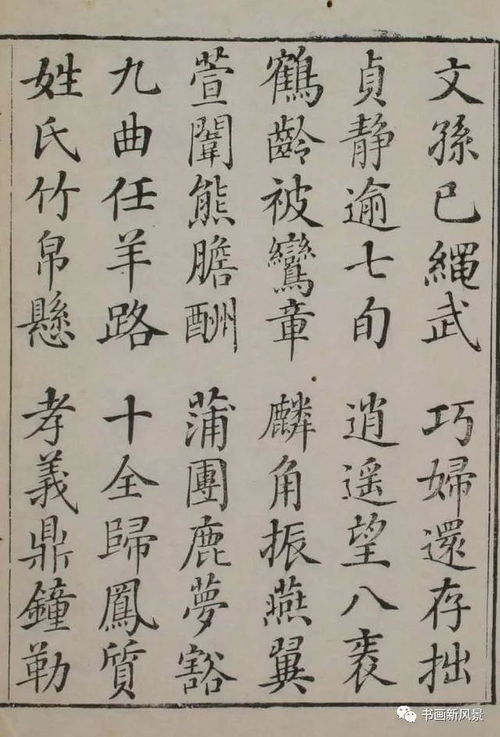 文孫已繩武　巧婦還存拙
貞靜逾七旬　逍遥望八袠
鶴齡被鸞章　麟角振燕翼
萱闈熊膽酬　蒲團鹿夢豁
九曲任羊路　十全歸鳳質
姓氏竹帛懸　孝義鼎鐘勒
书画新风景